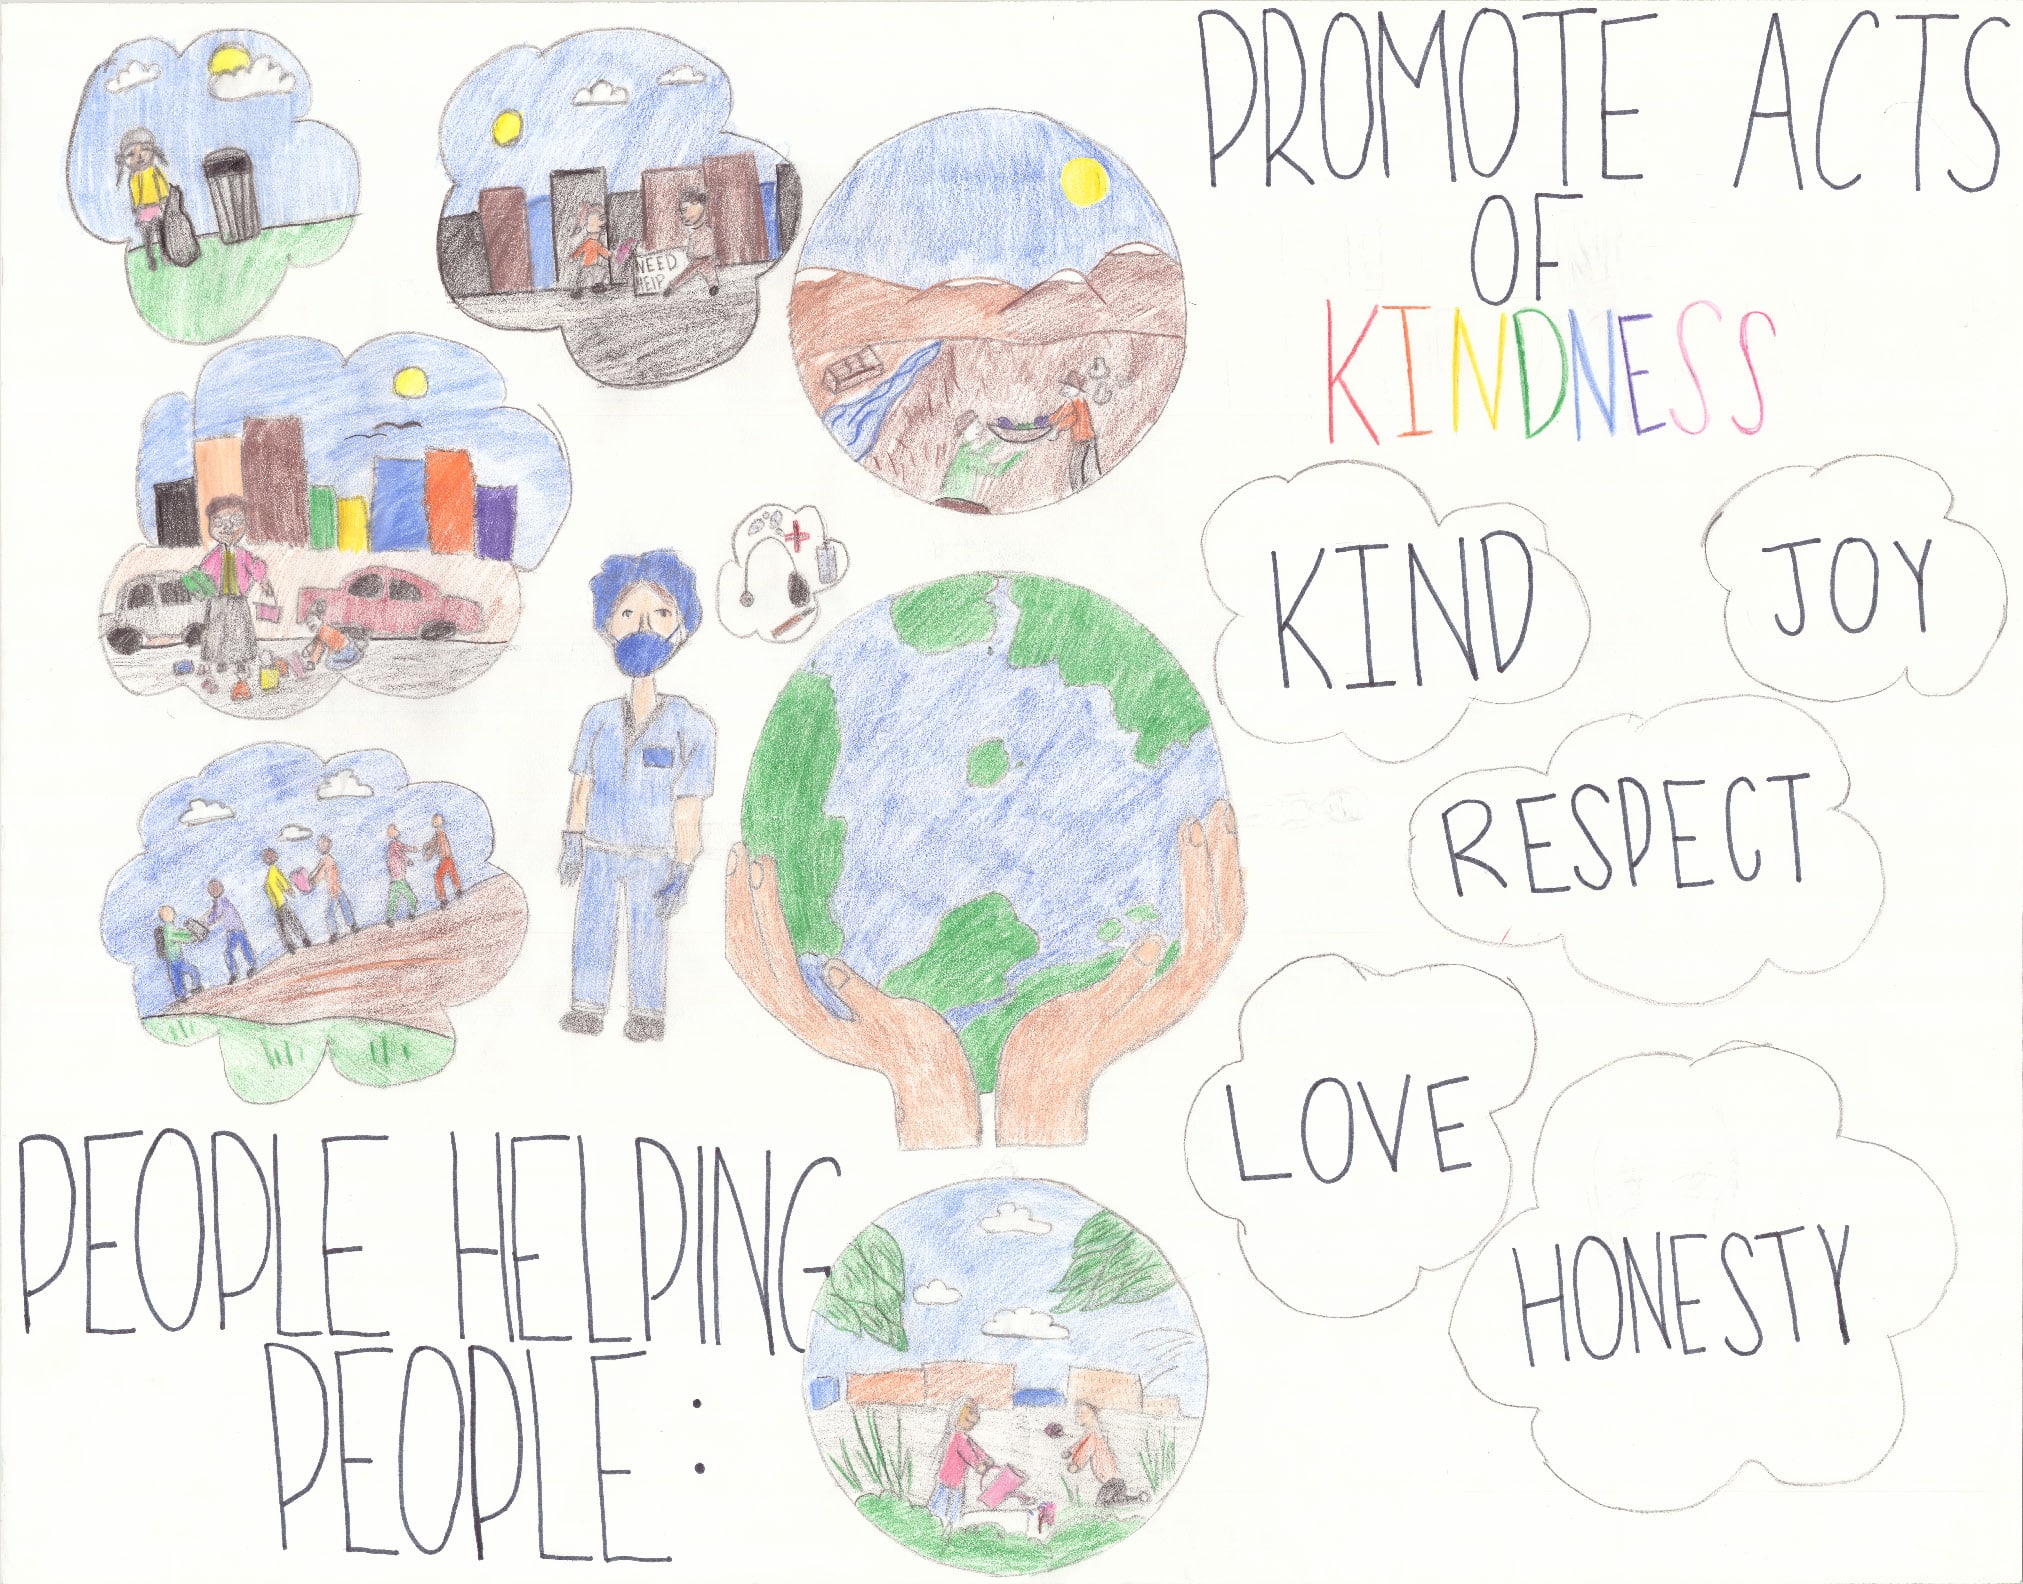 PROMOTE ACTS
OF
KINDNESS
NEED
HELP
KIND
JOY
RESPECT
LOVE
HONESTY
PEOPLE HELPING
PEOPLE :